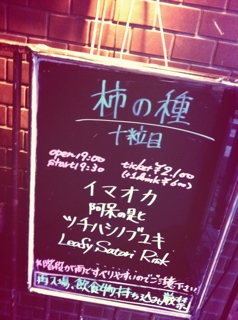 柿の種
十粒目
open 19:00 ticket ¥2,100
start 19:30 (+1drink ¥600)
イマオカ
阿呆の匙
ツチハシノブユキ
Leady Satori Risk
※階段が雨ですべりやすいのでご注意下さい
再入場、飲食物持ち込み厳禁